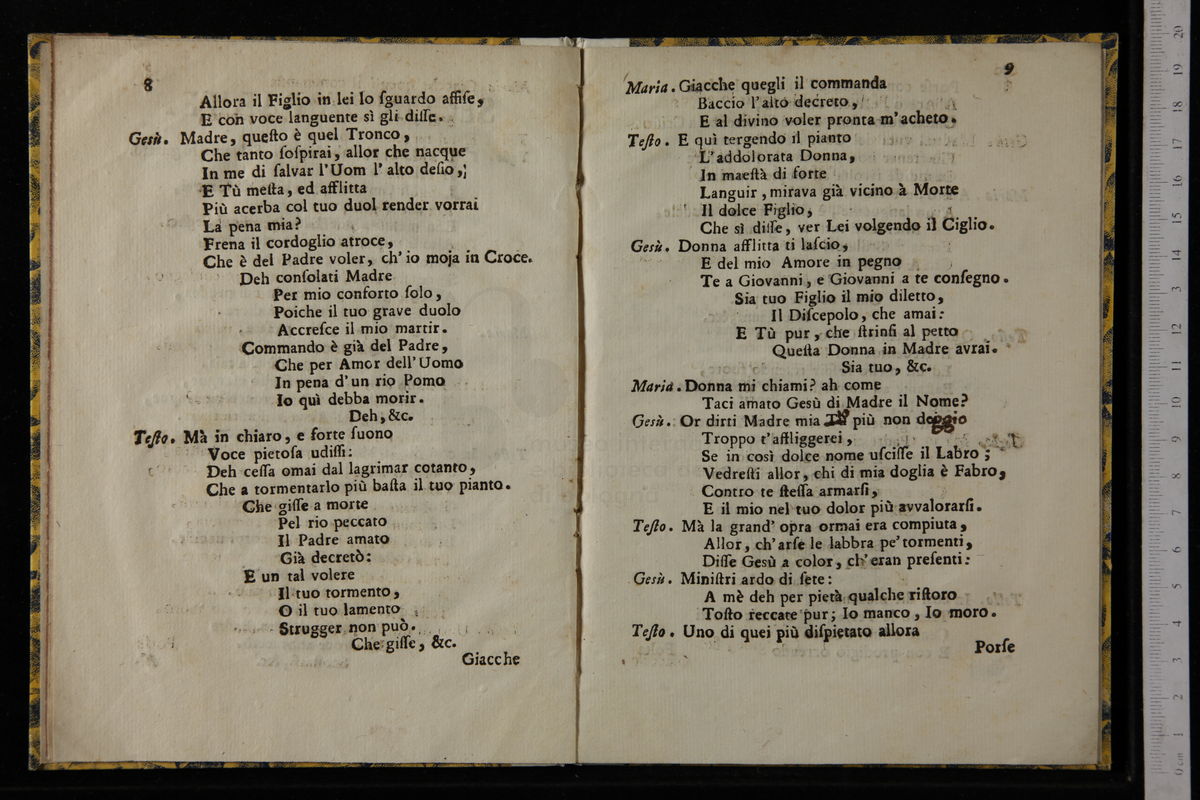 8
Allora il Figlio in lei lo ſguardo affiſe,
E con voce languente sì gli diſſe.
Gesù. Madre, queſto è quel Tronco,
Che tanto ſoſpirai, allor che nacque
In me di ſalvar l'Uom l'alto deſio,
E Tù meſta, ed afflitta
Più acerba col tuo duol render vorrai
La pena mia?
Frena il cordoglio atroce,
Che è del Padre voler, ch'io moja in Croce.
Deh conſolati Madre
Per mio conforto ſolo,
Poiche il tuo grave duolo
Accreſce il mio martir.
Commando è già del Padre,
Che per Amor dell'Uomo
In pena d'un rio Pomo
Io quì debba morir.
Deh, &c.
Teſto. Mà in chiaro, e forte ſuono
Voce pietoſa udiſſi:
Deh ceſſa omai dal lagrimar cotanto,
Che a tormentarlo più baſta il tuo pianto.
Che giſſe a morte
Pel rio peccato
Il Padre amato
Già decretò:
E un tal volere
Il tuo tormento,
O il tuo lamento
Strugger non può.
Che giſſe, &c.
Giacche
9
Maria. Giacche quegli il commanda
Baccio l'alto decreto,
E al divino voler pronta m'acheto.
Teſto. E quì tergendo il pianto
L'addolorata Donna,
In maeſtà di forte
Languir, mirava già vicino à Morte
Il dolce Figlio,
Che sì diſſe, ver Lei volgendo il Ciglio.
Gesù. Donna afflitta ti laſcio,
E del mio Amore in pegno
Te a Giovanni, e Giovanni a te conſegno.
Sia tuo Figlio il mio diletto,
Il Diſcepolo, che amai:
E Tù pur, che ſtrinſi al petto
Queſta Donna in Madre avrai.
Sia tuo, &c.
Maria. Donna mi chiami? ah come
Taci amato Gesù di Madre il Nome?
Gesù. Or dirti Madre mia più non deggio
Troppo t'affliggerei,
Se in così dolce nome uſciſſe il Labro;
Vedreſti allor, chi di mia doglia è Fabro,
Contro te ſteſſa armarſi,
E il mio nel tuo dolor più avvalorarſi.
Teſto. Mà la grand' opra ormai era compiuta,
Allor, ch'arſe le labbra pe' tormenti,
Diſſe Gesù a color, ch'eran preſenti:
Gesù. Miniſtri ardo di ſete:
A mè deh per pietà qualche riſtoro
Toſto reccate pur; Io manco, Io moro.
Teſto. Uno di quei più diſpietato allora
Porſe